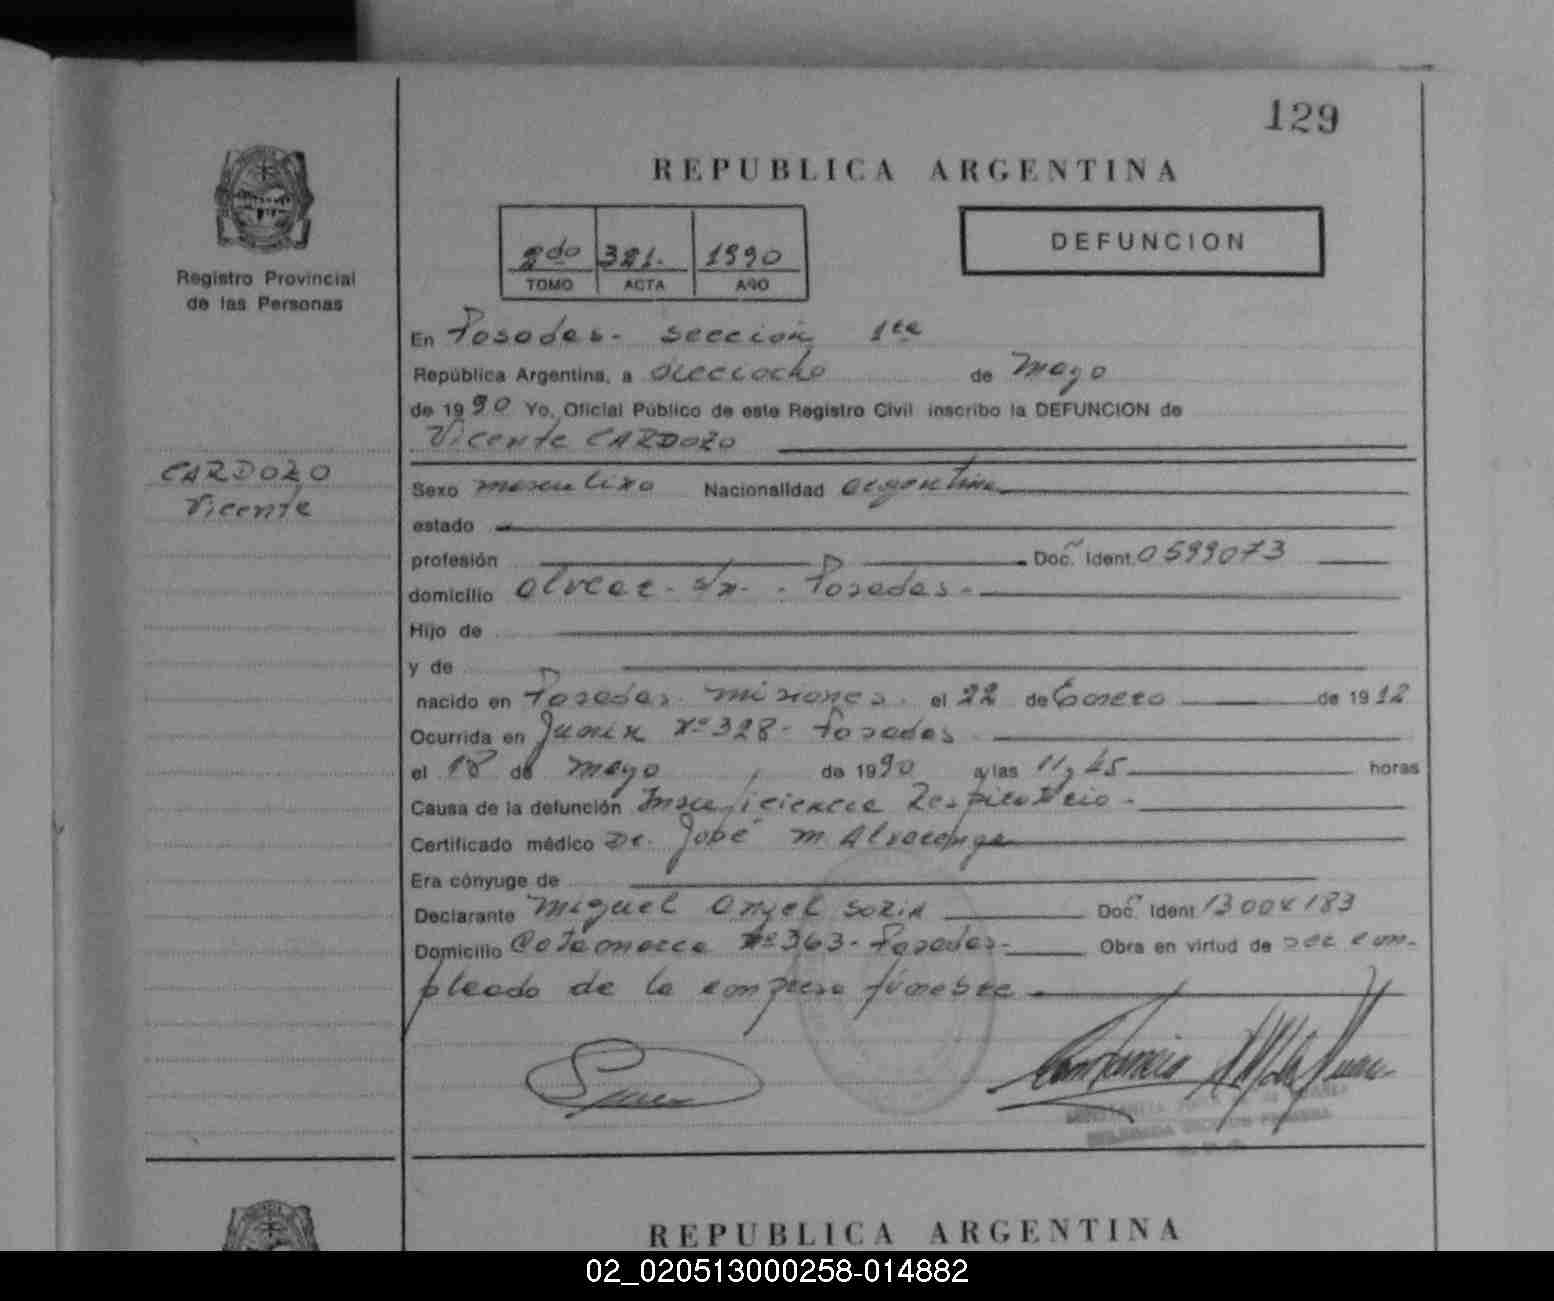 129
REPUBLICA ARGENTINA
2do 321. 1990
TOMO ACTA AÑO
DEFUNCION
Registro Provincial
de las Personas
En Posadas - sección 1ra
República Argentina, a dieciocho de Mayo
de 1990 Yo, Oficial Público de este Registro Civil inscribo la DEFUNCION de
Vicente CARDOZO
CARDOZO
Vicente
Sexo masculino Nacionalidad argentina
estado
profesión Doc. Ident. 0599073
domicilio Alvear - s/n - Posadas -
Hijo de
y de
nacido en Posadas. Misiones. el 22 de Enero de 1912
Ocurrida en Junin Nº 328 - Posadas
el 18 de Mayo de 1990 a las 11,45 horas
Causa de la defunción Insuficiencia Respiratorio -
Certificado médico Dr. José M. Alvarenga
Era cónyuge de
Declarante Miguel Angel Soria Doc. Ident 13004183
Domicilio Catamarca Nº 363 - Posadas - Obra en virtud de ser em-
pleado de la empresa fúnebre
REPUBLICA ARGENTINA
02_020513000258-014882